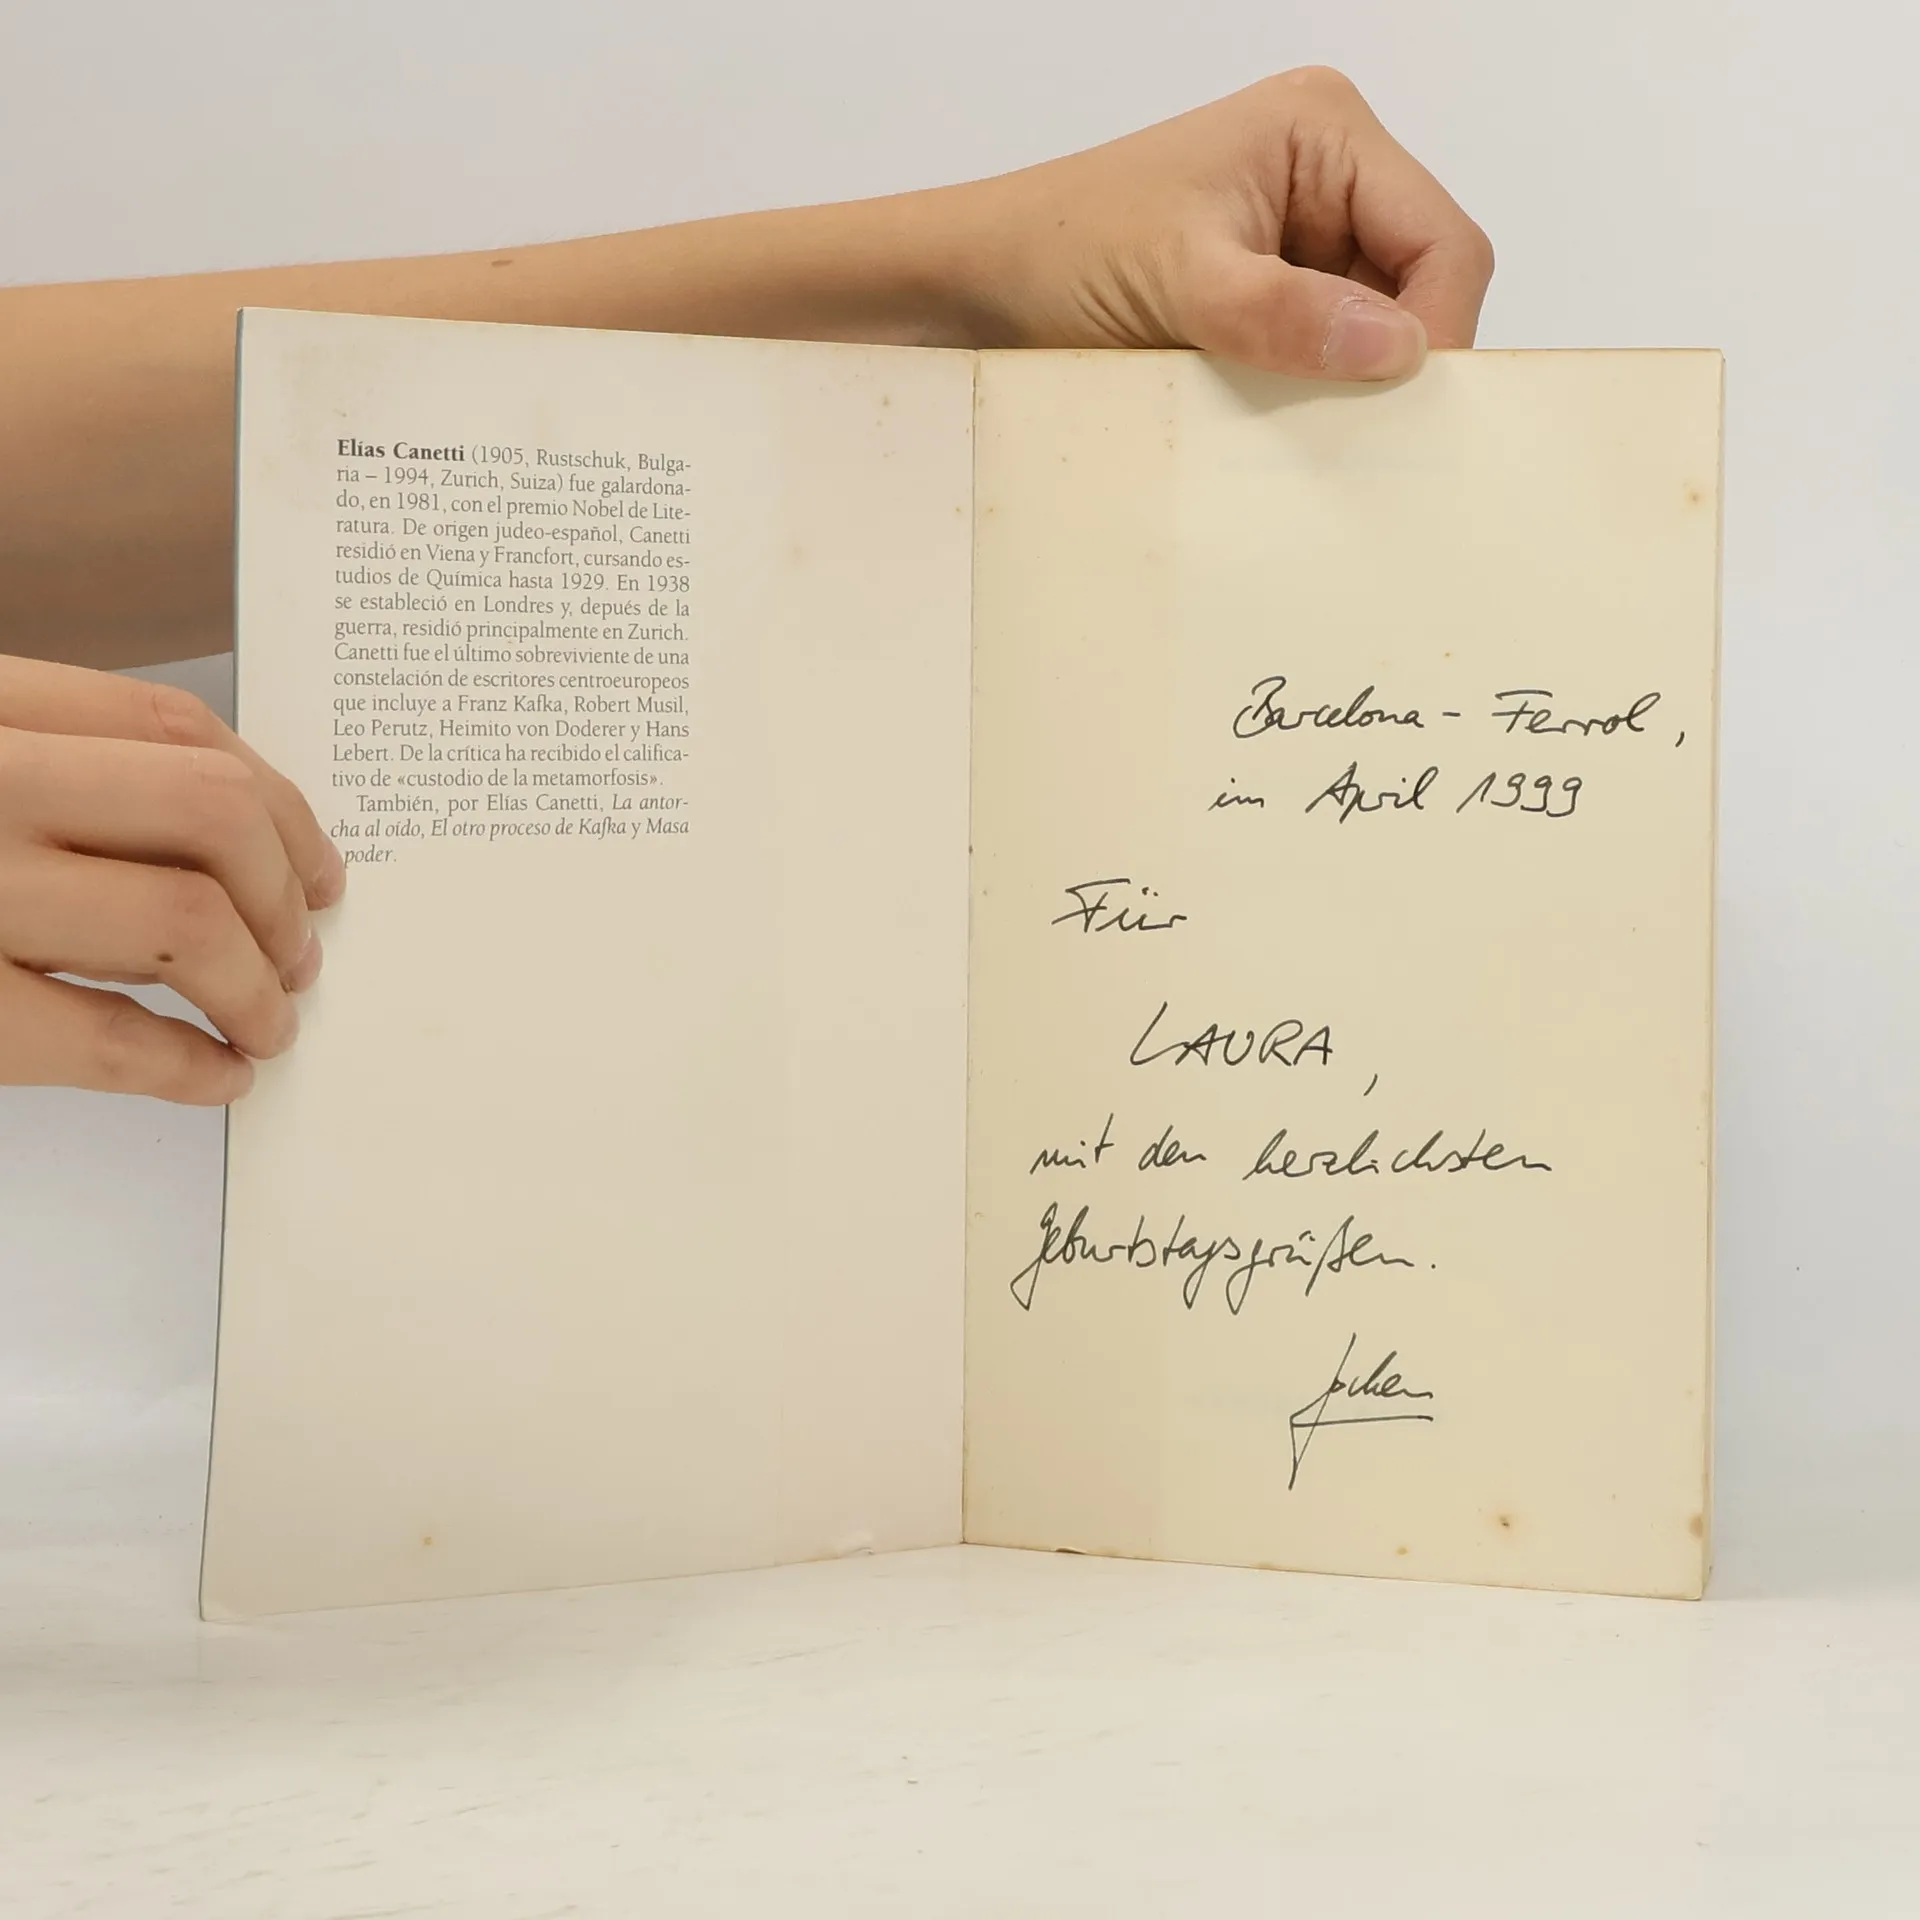 Elías Canetti (1905, Rustschuk, Bulga-
ria – 1994, Zurich, Suiza) fue galardona-
do, en 1981, con el premio Nobel de Lite-
ratura. De origen judeo-español, Canetti
residió en Viena y Francfort, cursando es-
tudios de Química hasta 1929. En 1938
se estableció en Londres y, depués de la
guerra, residió principalmente en Zurich.
Canetti fue el último sobreviviente de una
constelación de escritores centroeuropeos
que incluye a Franz Kafka, Robert Musil,
Leo Perutz, Heimito von Doderer y Hans
Lebert. De la crítica ha recibido el califica-
tivo de «custodio de la metamorfosis».
También, por Elías Canetti, La antor-
cha al oído, El otro proceso de Kafka y Masa
poder.
Barcelona - Ferrol,
im April 1999
Für
LAURA,
mit den herzlichsten
Geburtstagsgrüßen.
Jochen